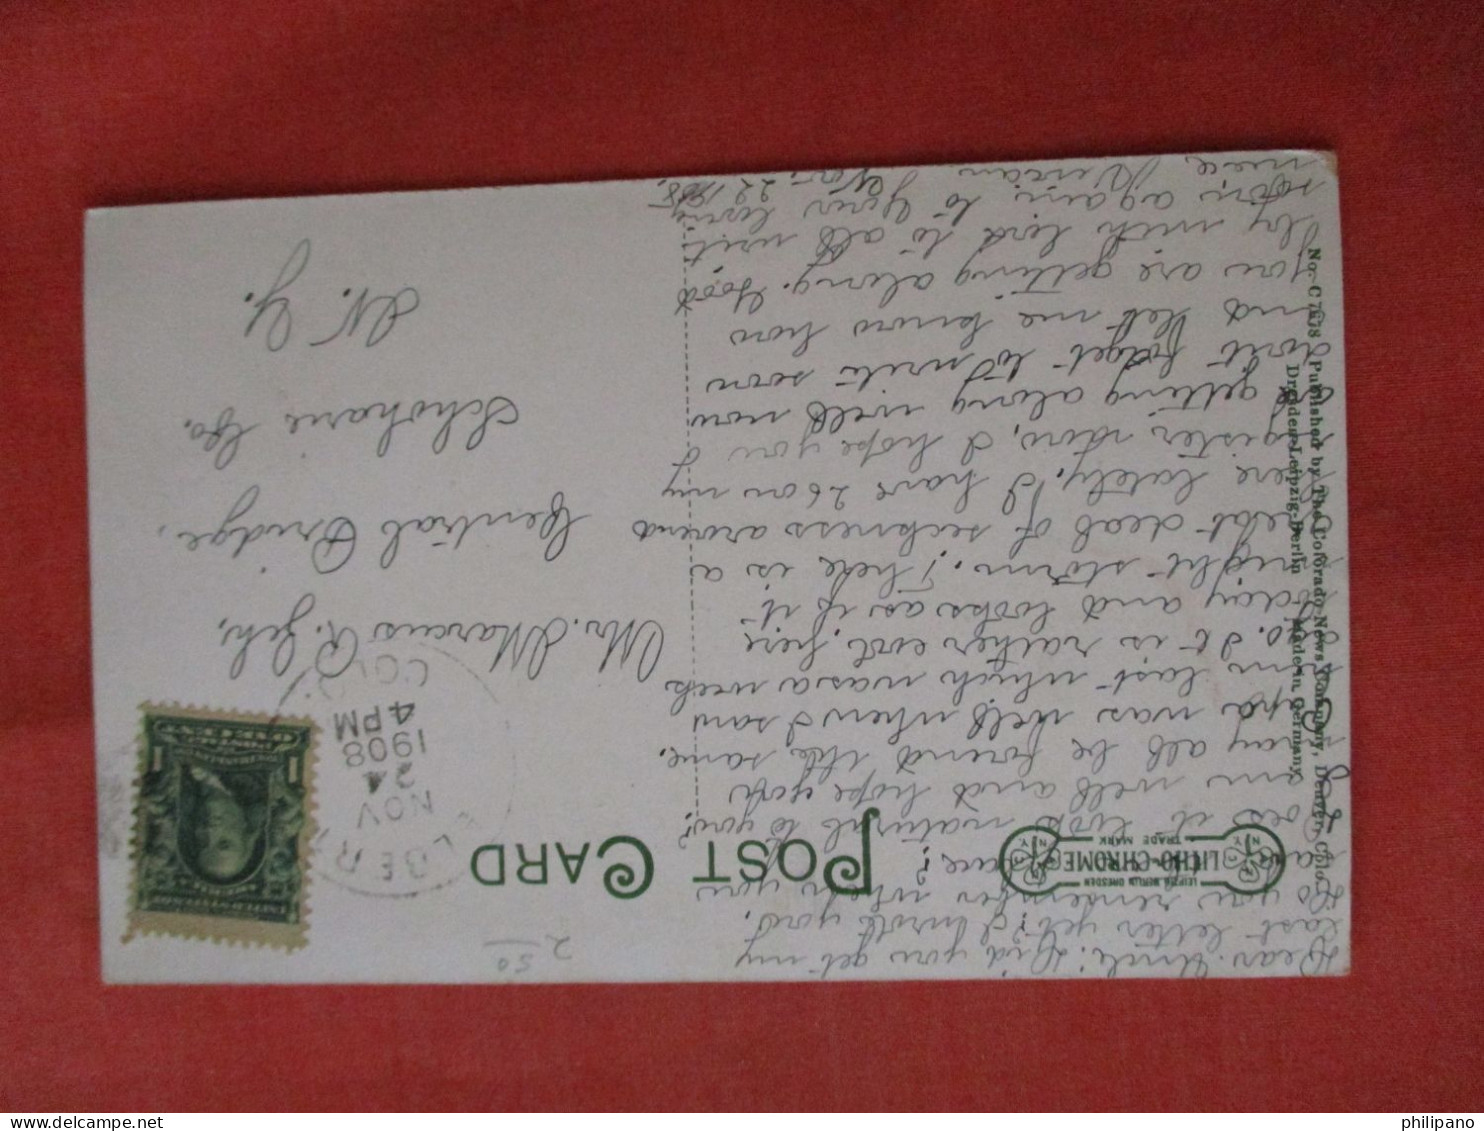 Dear Uncle: Did you get my
last letter yet? I wrote you.
Do you remember when you
here?
Does it look natural to you?
am well and hope you
may all be found the same.
Grandpa was well when I saw
him last which was a week
ago. It is rather cool here
today and looks as if it
might storm. There is a
great deal of sickness around
here lately. I have 26 on my
register now, I hope you
getting along well now
don't forget to write soon
and let me know how
you are getting along. Good
by with love to all write
soon again to your loving
niece Vivian
Nov. 22 1908.
POST CARD
LEIPZIG BERLIN DRESDEN
LITHO-CHROME
TRADE MARK
N. Y.
N. Y.
No. C 7678 Published by The Colorado News Company, Denver, Colo.
Dresden-Leipzig-Berlin Made in Germany
2 50
NOV
24
4 PM
1908
COLO.
1
1
Mr. Marcus R. Zeh,
Central Bridge,
Schoharie Co.
N. Y.
philipano